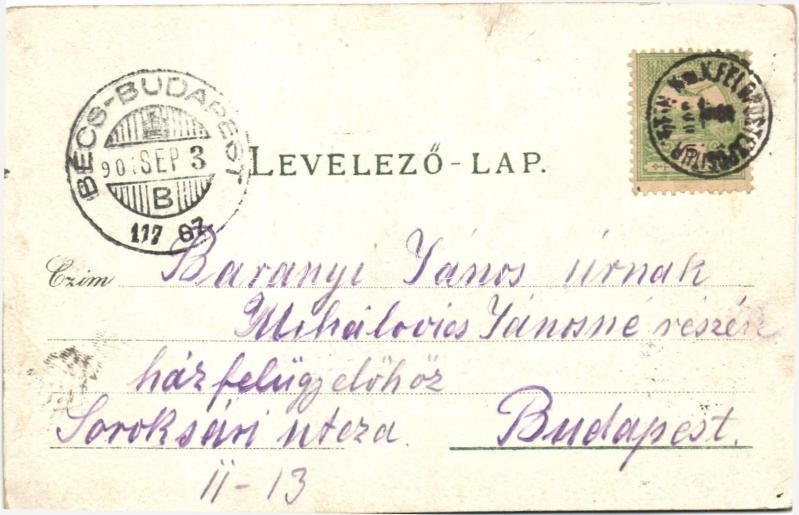 BÉCS-BUDAPEST
901 SEP 3
B
117 SZ.
LEVELEZŐ-LAP.
Czim Baranyi János úrnak
Mihálovics Jánosné részére
házfelügyelőhöz
Soroksári utcza. Budapest.
II-13